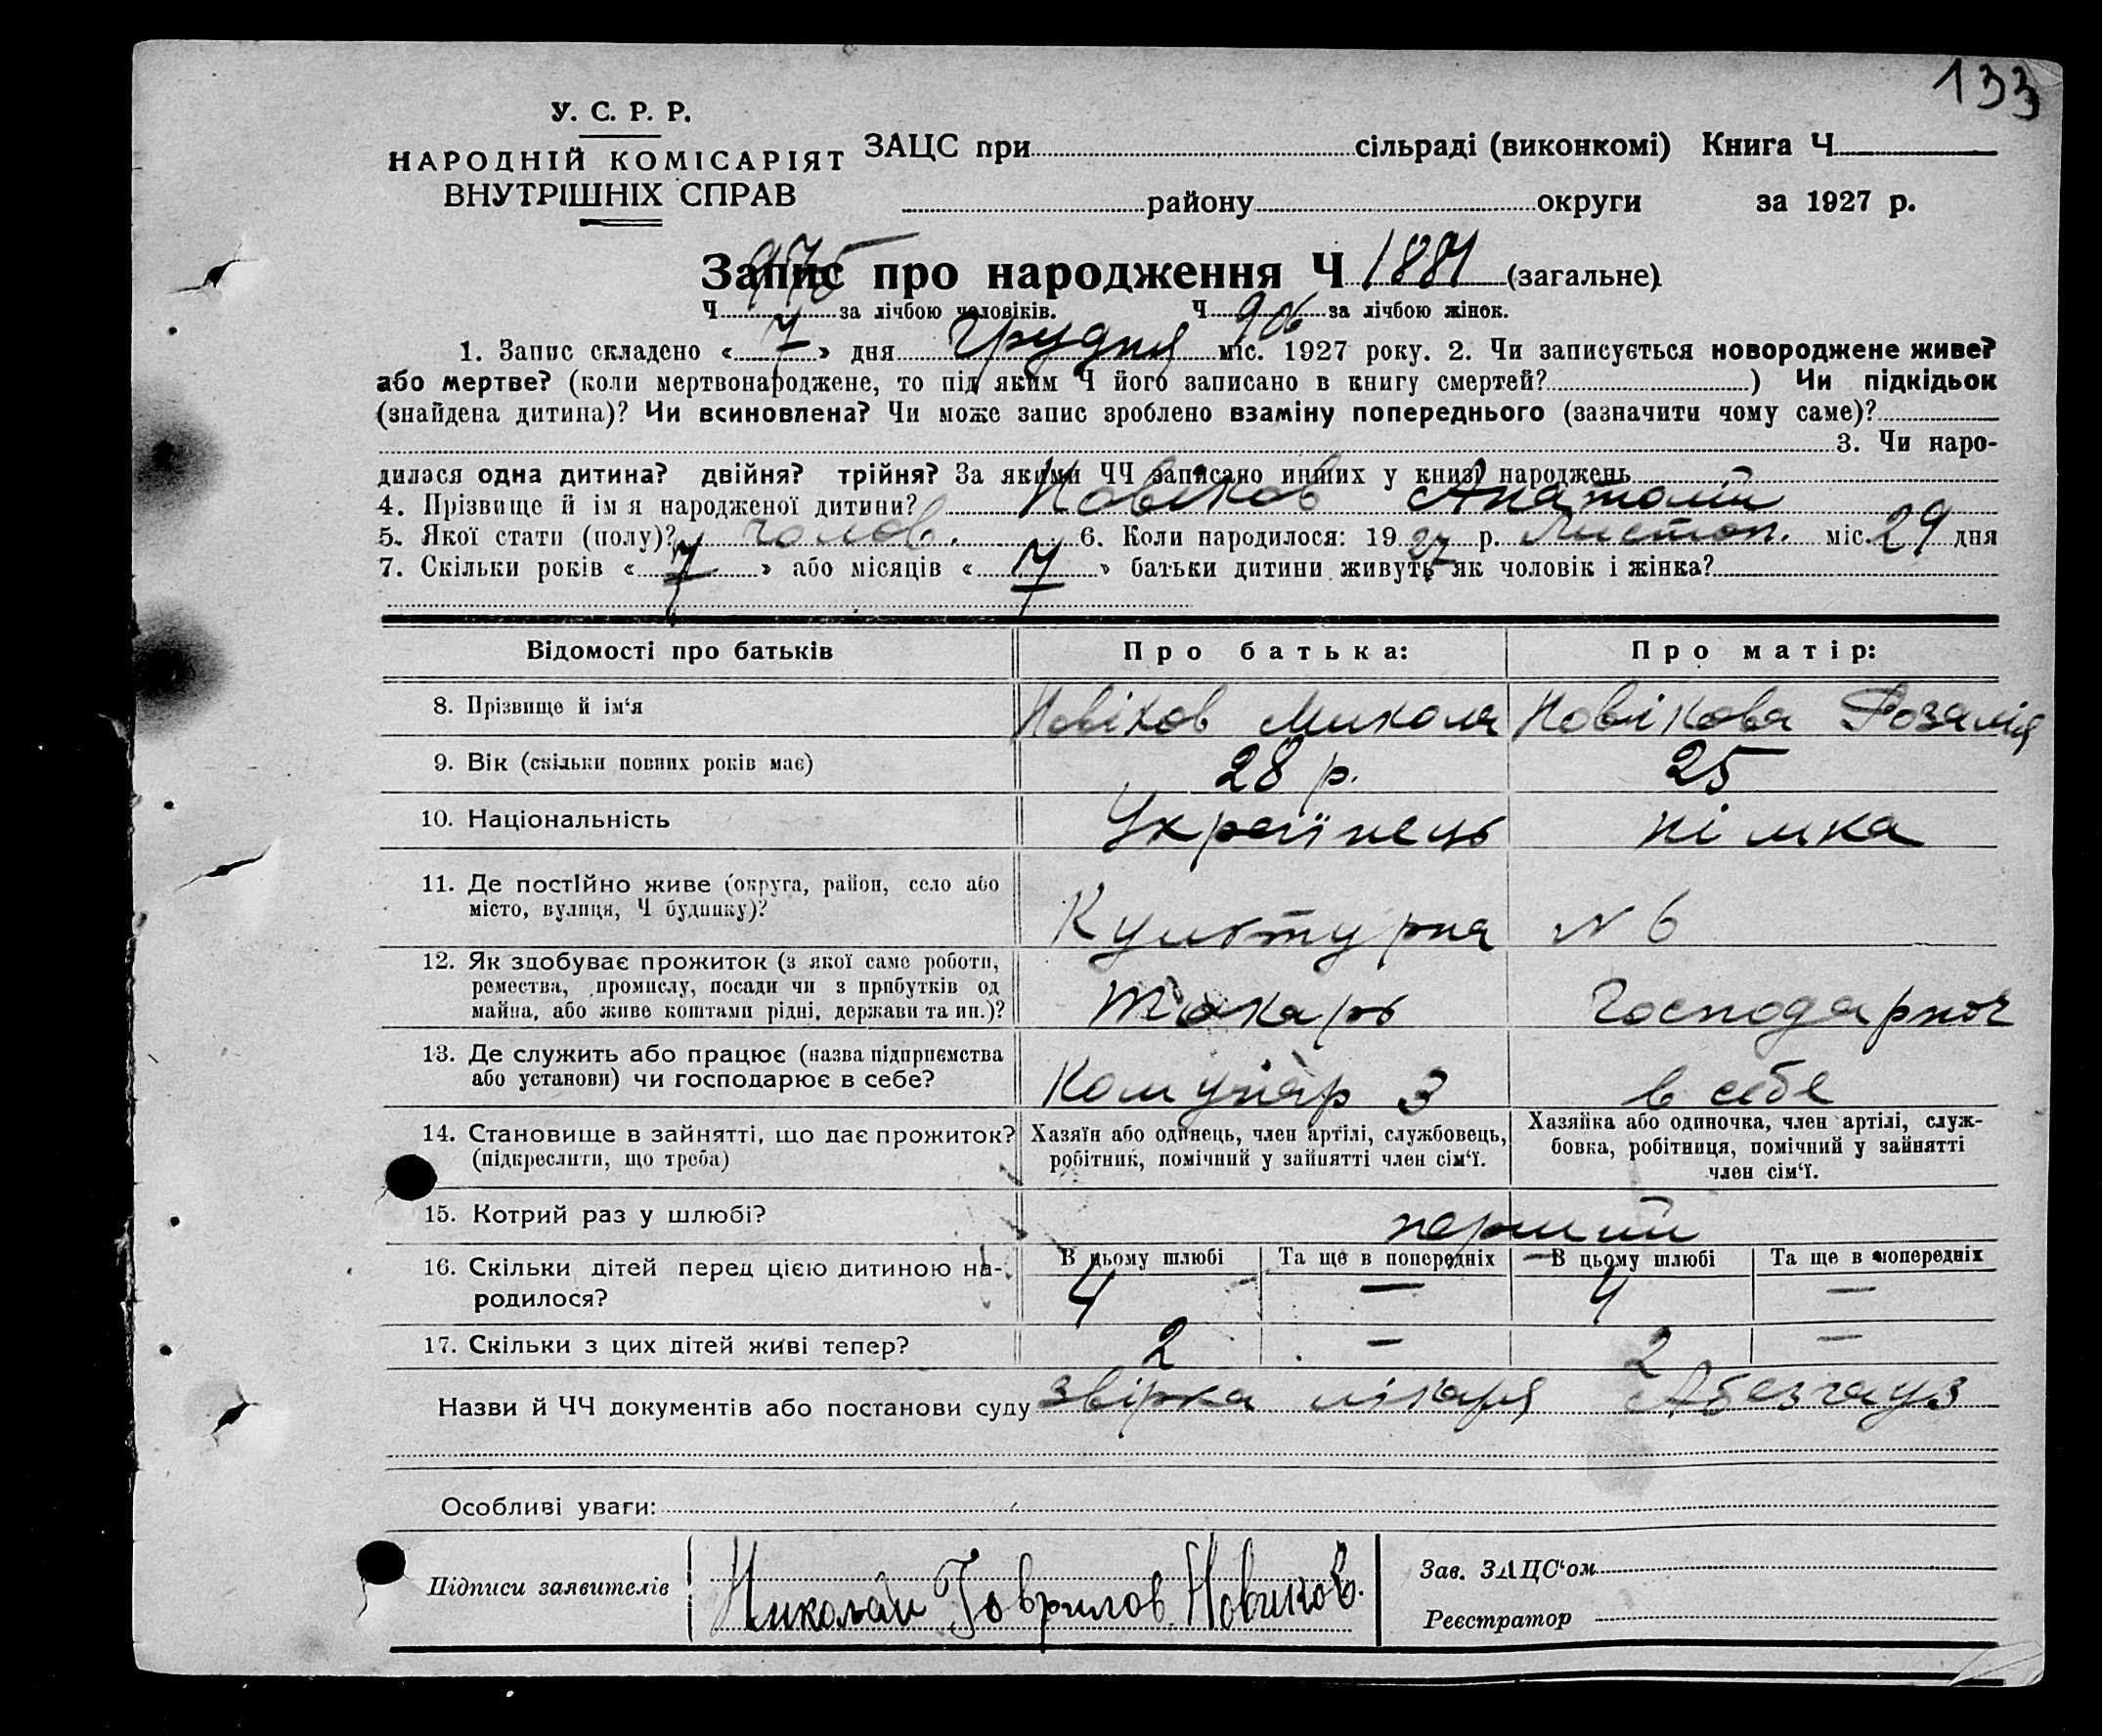 133
У. С. Р. Р.
НАРОДНІЙ КОМІСАРІЯТ
ВНУТРІШНІХ СПРАВ
ЗАЦС при сільраді (виконкомі) Книга Ч
району округи за 1927 р.
Запис про народження Ч 1881 (загальне)
Ч 975 за лічбою чоловіків. Ч 906 за лічбою жінок.
1. Запис складено « 7 » дня Грудня міс. 1927 року. 2. Чи записується новороджене живе?
або мертве? (коли мертвонароджене, то під яким Ч його записано в книгу смертей? ) Чи підкідьок
(знайдена дитина)? Чи всиновлена? Чи може запис зроблено взаміну попереднього (зазначити чому саме)?
3. Чи наро-
дилася одна дитина? двійня? трійня? За якими ЧЧ записано инших у книзі народжень
4. Прізвище й імя народженої дитини? Новіков Анатолій
5. Якої стати (полу)? чолов. 6. Коли народилося: 19 27 р. Листоп. міс. 29 дня
7. Скільки років « 7 » або місяців « 7 » батьки дитини живуть як чоловік і жінка?
Відомості про батьків Про батька: Про матір:
8. Прізвище й ім‘я Новіков Микола Новікова Розалія
9. Вік (скільки повних років має) 28 р. 25
10. Національність Українець німка
11. Де постійно живе (округа, район, село або
місто, вулиця, Ч будинку)? Культурна N 6
12. Як здобуває прожиток (з якої саме роботи,
ремества, промислу, посади чи з прибутків од
майна, або живе коштами рідні, держави та ин.)? токарь Господарює
13. Де служить або працює (назва підприємства
або установи) чи господарює в себе? Комунар 3 в себе
14. Становище в зайнятті, що дає прожиток?
(підкреслити, що треба)
Хазяїн або одинець, член артілі, службовець,
робітник, помічний у зайнятті член сім‘ї.
Хазяйка або одиночка, член артілі, служ-
бовка, робітниця, помічний у зайнятті
член сім‘ї.
15. Котрий раз у шлюбі? перший
16. Скільки дітей перед цією дитиною на-
родилося?
В цьому шлюбі Та ще в попередніх В цьому шлюбі Та ще в попередніх
4 — 4 —
17. Скільки з цих дітей живі тепер? 2 — 2 —
Назви й ЧЧ документів або постанови суду звірка лікаря
Особливі уваги:
Підписи заявителів Николай Гаврилов Новиков.
Зав. ЗАЦС‘ом
Реєстратор